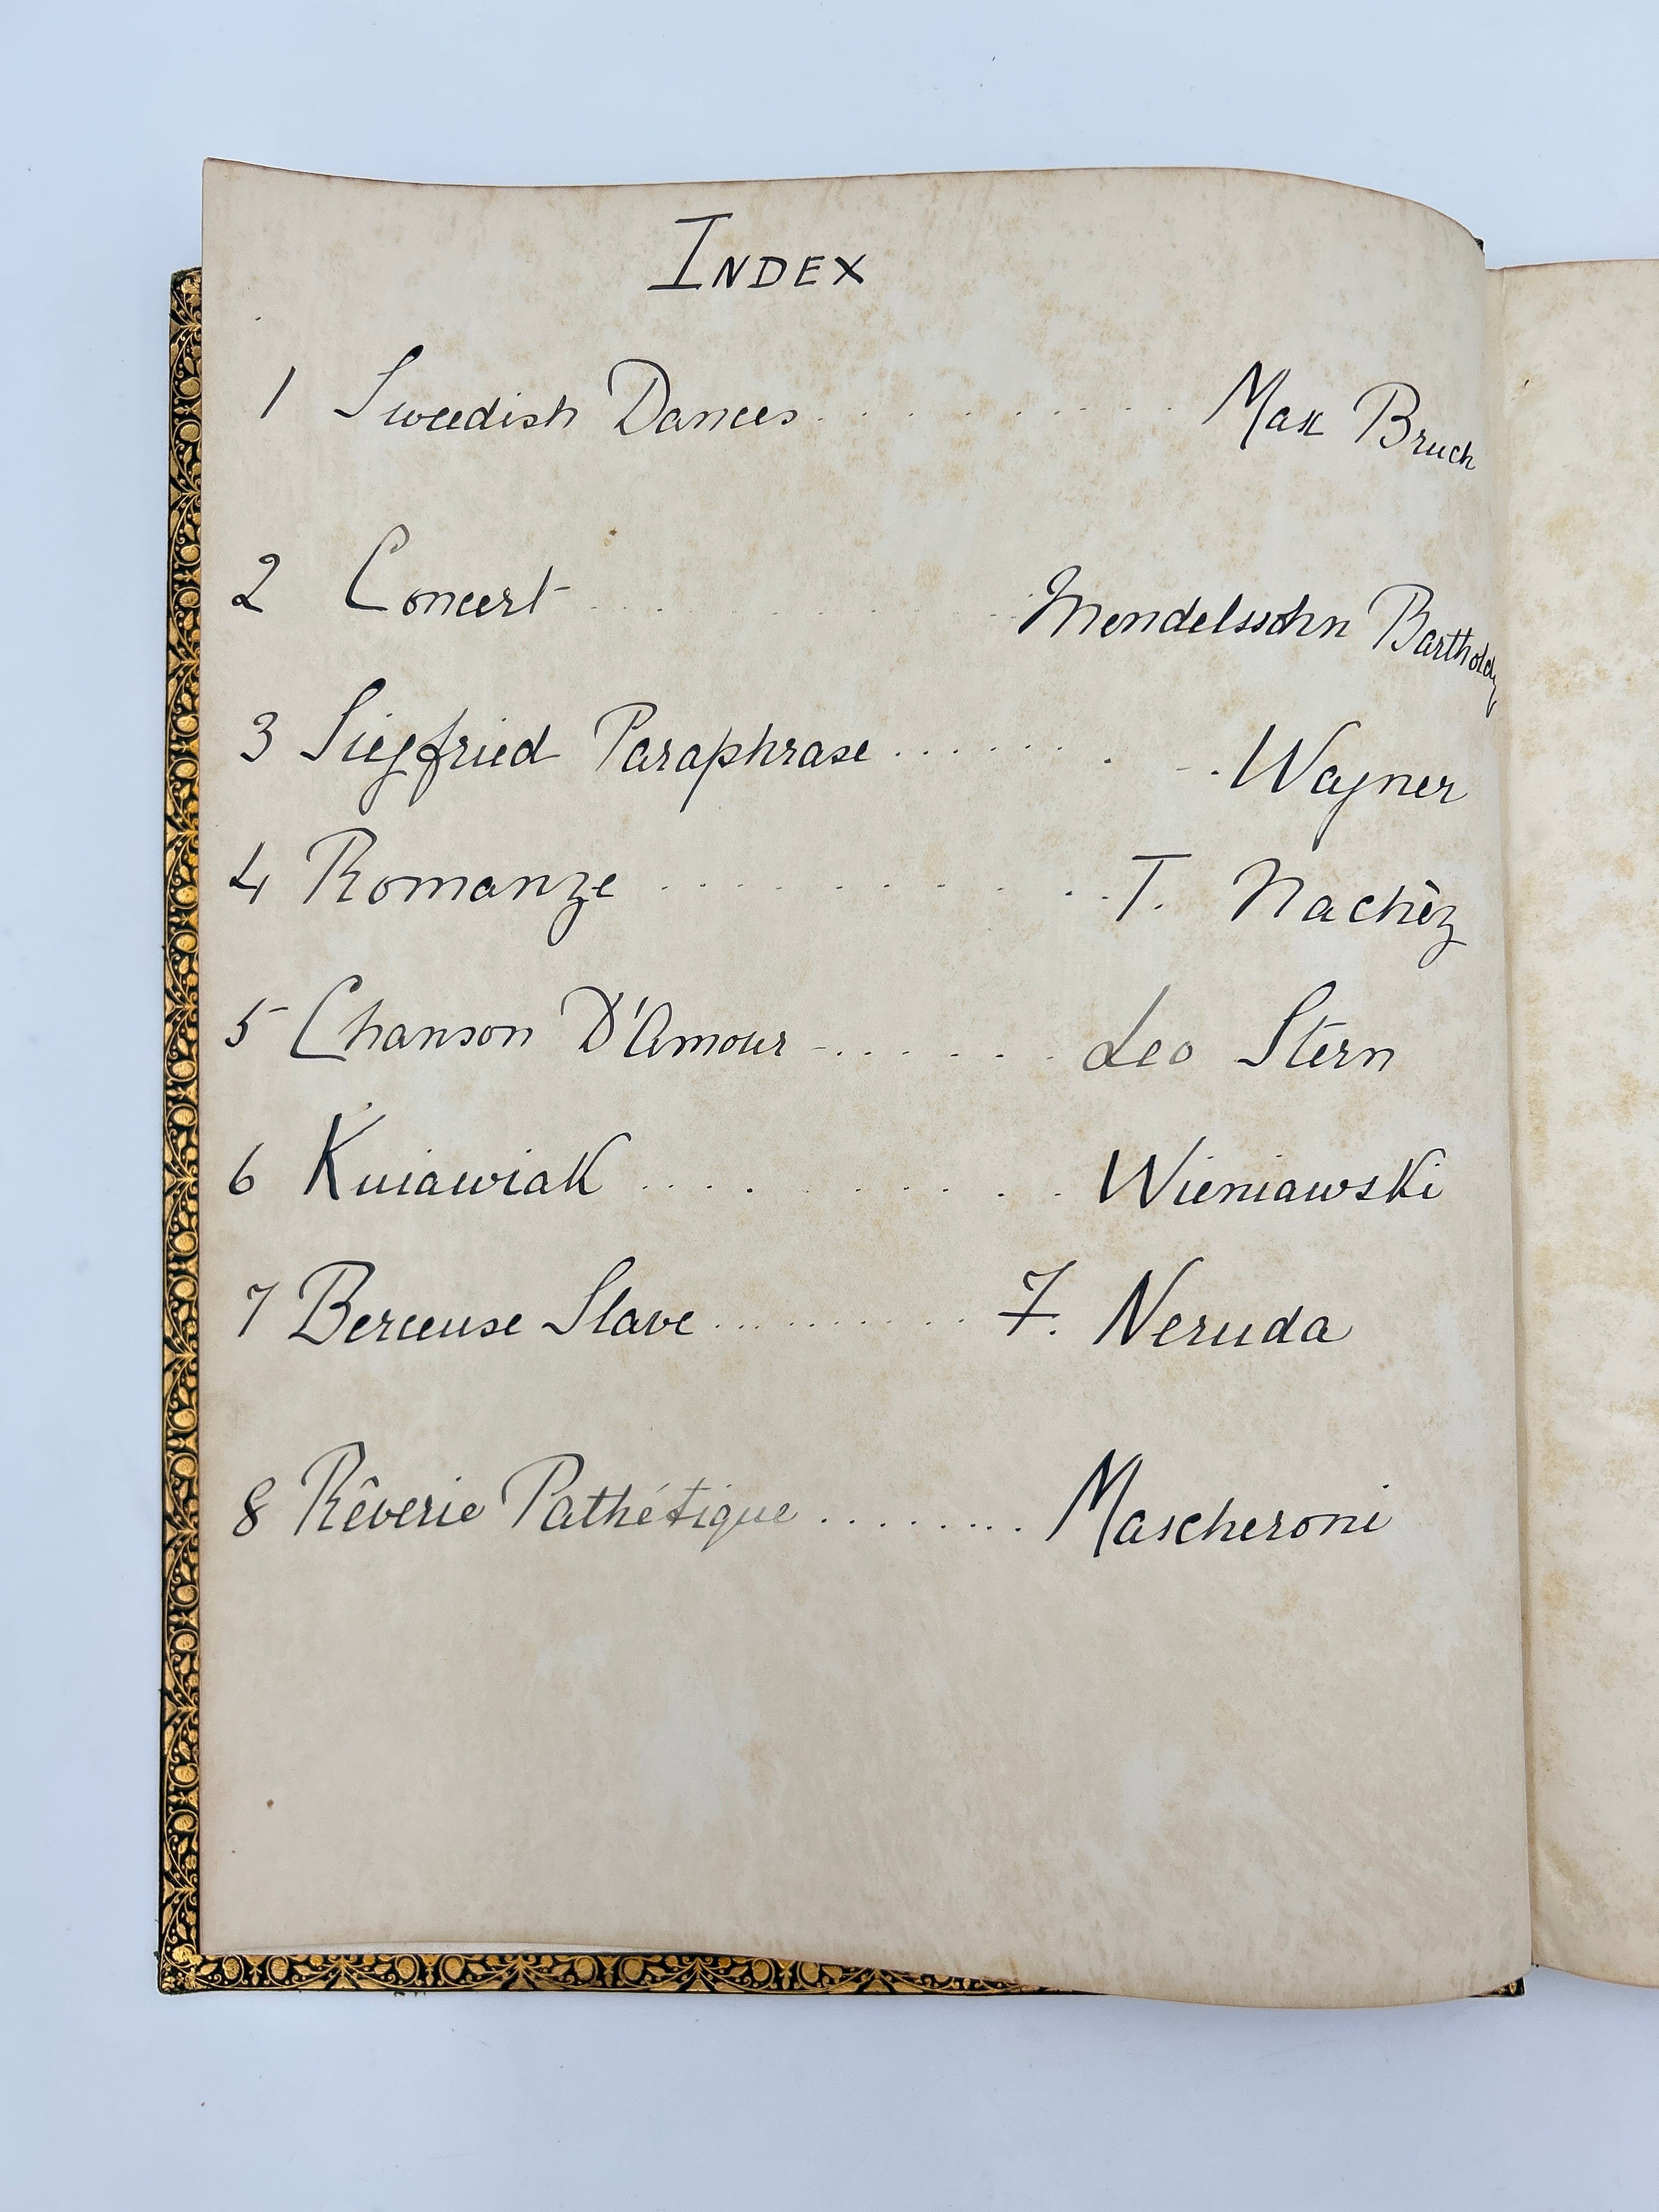 INDEX
1 Swedish Dances . . . . . . . . . . Max Bruch
2 Concert . . . . . . . . . Mendelssohn Bartholdy
3 Siegfried Paraphrase . . . . . . . . . Wagner
4 Romanze . . . . . . . . . . T. Nachèz
5 Chanson D'Amour . . . . . . . Leo Stern
6 Kuiawiak . . . . . . . . . Wieniawski
7 Berceuse Slave . . . . . . . . . . F. Neruda
8 Rêverie Pathétique . . . . . . . . . Mascheroni